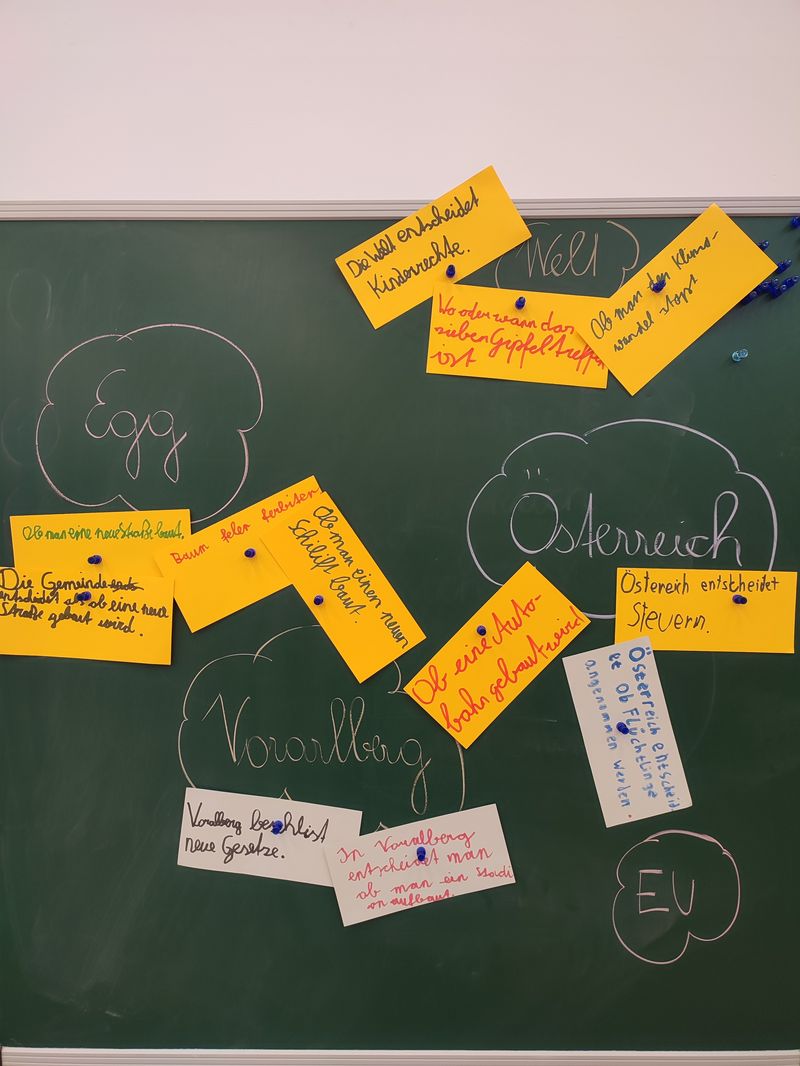 Die Welt entscheidet
Kinderrechte.
Welt
Wo oder wann das
sieben Gipfeltreffen
ist
Ob man den Klima-
wandel stopt
Egg
Österreich
Ob man eine neue Straße baut.
Die Gemeinde
entscheidet als ob eine neue
Straße gebaut wird.
Baum feler ferbiten
Ob man einen neuen
Schilift baut.
Ob eine Auto-
bahn gebaut wird
Östereich entscheidet
Steuern.
Österreich entscheid
et ob Flüchtlinge
angenommen werden.
Vorarlberg
Voralberg beschlist
neue Gesetze.
In Voralberg
entscheidet man
ob man ein Stadi
on aufbaut.
EU